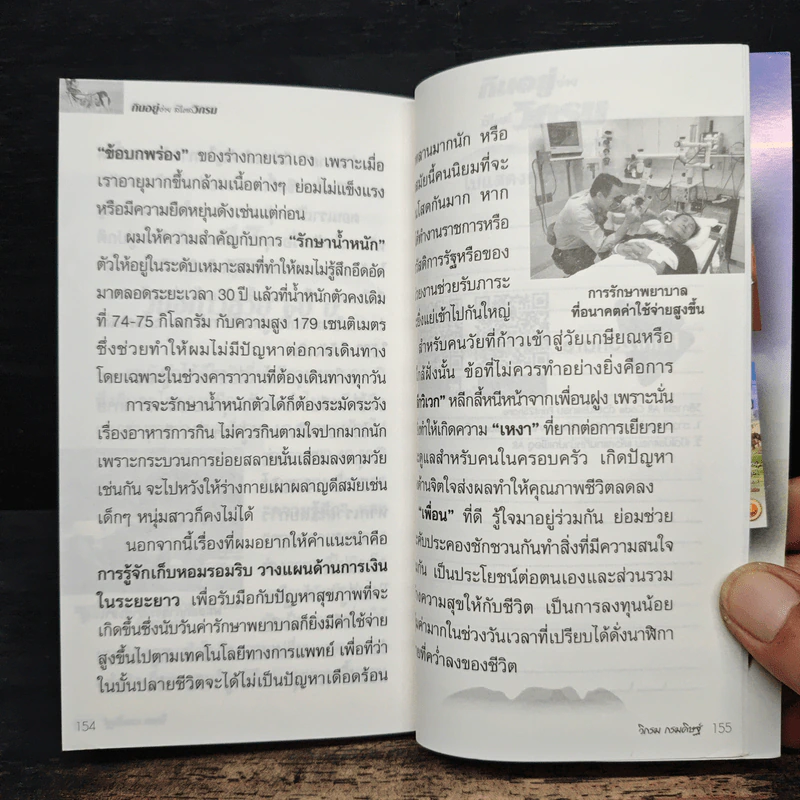 กินอยู่อย่าง พี่โตวิกรม
“ข้อบกพร่อง” ของร่างกายเราเอง เพราะเมื่อ
เราอายุมากขึ้นกล้ามเนื้อต่างๆ ย่อมไม่แข็งแรง
หรือมีความยืดหยุ่นดังเช่นแต่ก่อน
ผมให้ความสำคัญกับการ “รักษาน้ำหนัก”
ตัวให้อยู่ในระดับเหมาะสมที่ทำให้ผมไม่รู้สึกอึดอัด
มาตลอดระยะเวลา 30 ปี แล้วที่น้ำหนักตัวคงเดิม
ที่ 74-75 กิโลกรัม กับความสูง 179 เซนติเมตร
ซึ่งช่วยทำให้ผมไม่มีปัญหาต่อการเดินทาง
โดยเฉพาะในช่วงคาราวานที่ต้องเดินทางทุกวัน
การจะรักษาน้ำหนักตัวได้ก็ต้องระมัดระวัง
เรื่องอาหารการกิน ไม่ควรกินตามใจปากมากนัก
เพราะกระบวนการย่อยสลายนั้นเสื่อมลงตามวัย
เช่นกัน จะไปหวังให้ร่างกายเผาผลาญดีสมัยเช่น
เด็กๆ หนุ่มสาวก็คงไม่ได้
นอกจากนี้เรื่องที่ผมอยากให้คำแนะนำคือ
การรู้จักเก็บหอมรอมริบ วางแผนด้านการเงิน
ในระยะยาว เพื่อรับมือกับปัญหาสุขภาพที่จะ
เกิดขึ้นซึ่งนับวันค่ารักษาพยาบาลก็ยิ่งมีค่าใช้จ่าย
สูงขึ้นไปตามเทคโนโลยีทางการแพทย์ เพื่อที่ว่า
ในบั้นปลายชีวิตจะได้ไม่เป็นปัญหาเดือดร้อน
154
มากนัก หรือ
นี้คนนิยมที่จะ
โสดกันมาก หาก
ทำงานราชการหรือ
สวัสดิการรัฐหรือของ
งานช่วยรับภาระ
แย่เข้าไปกันใหญ่
การรักษาพยาบาล
ที่อนาคตค่าใช้จ่ายสูงขึ้น
สำหรับคนวัยที่ก้าวเข้าสู่วัยเกษียณหรือ
ใกล้ฝั่งนั้น ข้อที่ไม่ควรทำอย่างยิ่งคือการ
วิเวก” หลีกลี้หนีหน้าจากเพื่อนฝูง เพราะนั่น
ทำให้เกิดความ “เหงา” ที่ยากต่อการเยียวยา
ดูแลสำหรับคนในครอบครัว เกิดปัญหา
ด้านจิตใจส่งผลทำให้คุณภาพชีวิตลดลง
“เพื่อน” ที่ดี รู้ใจมาอยู่ร่วมกัน ย่อมช่วย
ประคองชักชวนกันทำสิ่งที่มีความสนใจ
กัน เป็นประโยชน์ต่อตนเองและส่วนรวม
ความสุขให้กับชีวิต เป็นการลงทุนน้อย
ค่ามากในช่วงวันเวลาที่เปรียบได้ดั่งนาฬิกา
ที่คว่ำลงของชีวิต
วิกรม กรมดิษฐ์ 155